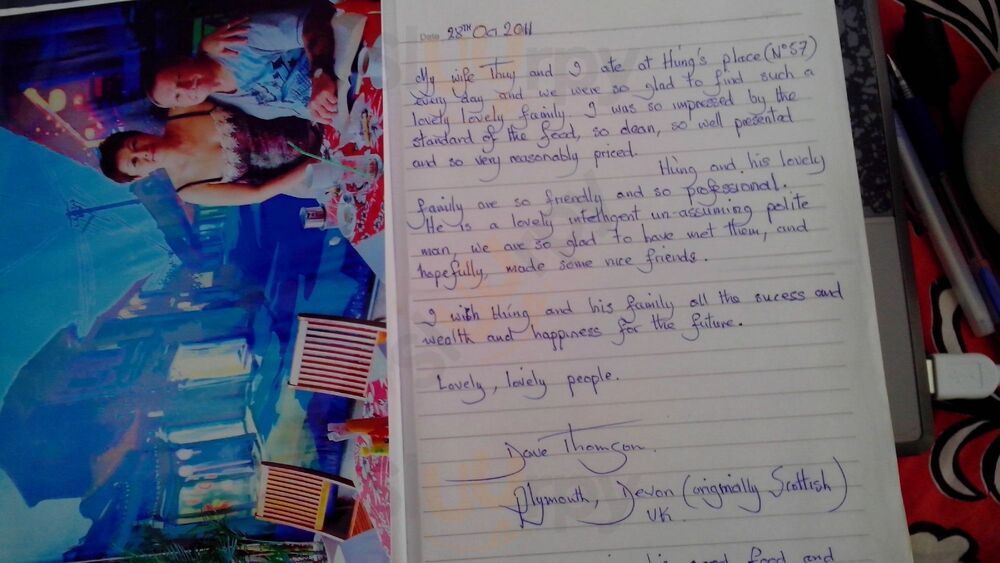 Date 28TH Oct 2011
My wife Thuy and I ate at Hùng's place (N°57)
every day and we were so glad to find such a
lovely lovely family. I was so impressed by the
standard of the food, so clean, so well presented
and so very reasonably priced.
Hùng and his lovely
family are so friendly and so professional.
He is a lovely intelligent un-assuming polite
man, we are so glad to have met them, and
hopefully, made some nice friends.
I wish Hùng and his family all the sucess and
wealth and happiness for the future.
Lovely, lovely people.
Dave Thomson.
Plymouth, Devon (originally Scottish)
UK.
good food and